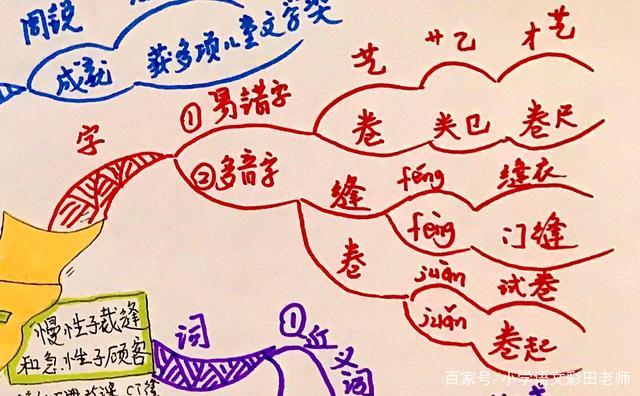 周锐
成就 获多项儿童文学奖
字
①易错字
艺 艹乙 才艺
卷 类㔾 卷尺
②多音字
缝 féng 缝衣
fèng 门缝
卷 juàn 试卷
juǎn 卷起
慢性子裁缝
和急性子顾客
词
①近义词
百家号/小学语文彩田老师